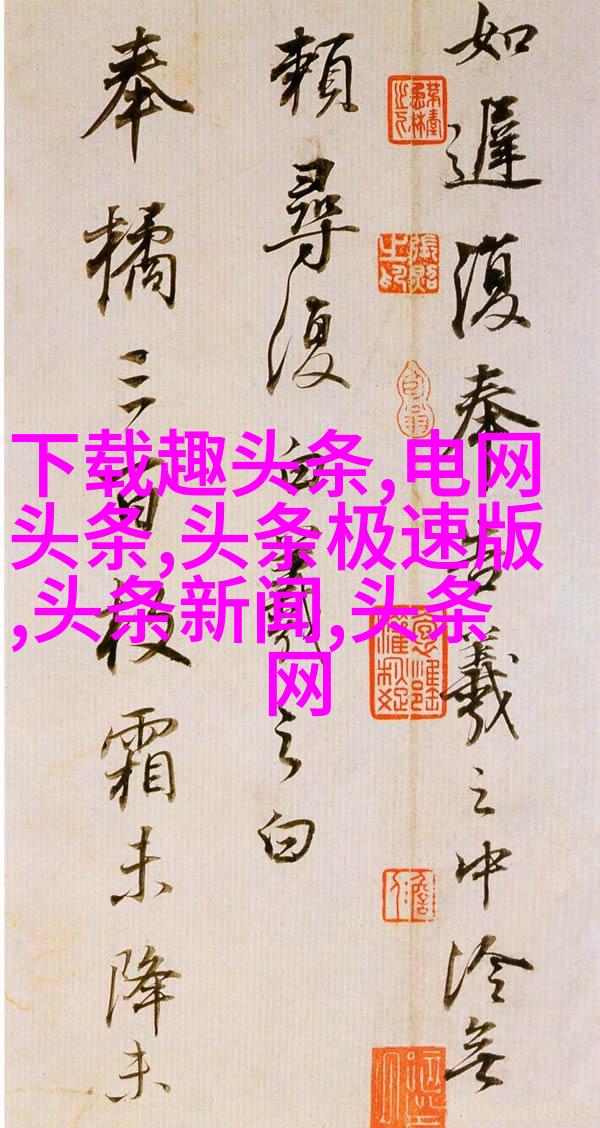 如遲復奉告羲之中冷無
賴尋復白羲之白
奉橘三百枚霜未降未
下载趣头条,电网
头条,头条极速版
,头条新闻,头条
网